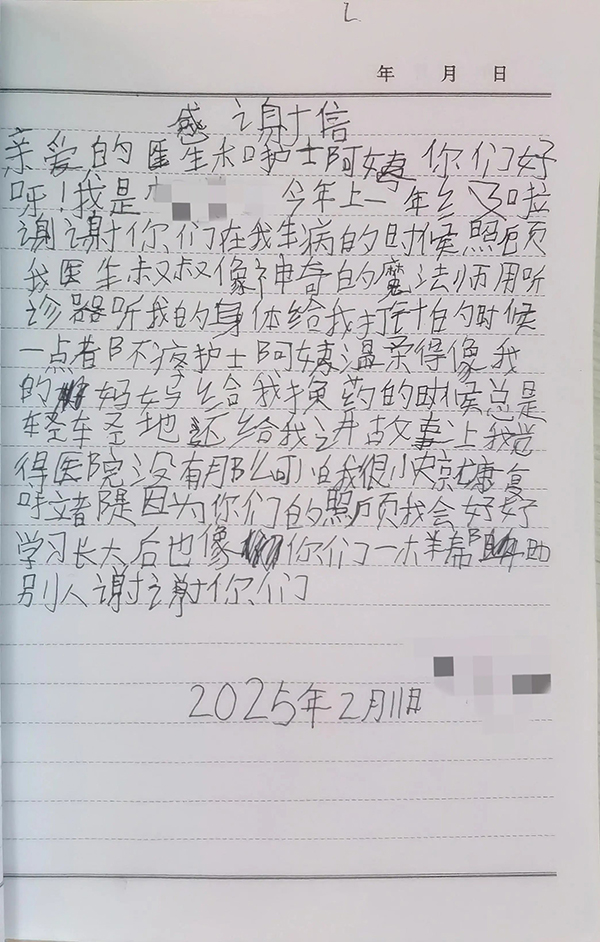 年 月 日
感谢信
亲爱的医生和护士阿姨你们好
呀!我是 今年上一年级啦
谢谢你们在我生病的时候照顾
我医生叔叔像神奇的魔法师用听
诊器听我的身体给我打针的时候
一点都不疼护士阿姨温柔得像我
的妈妈给我换药的时候总是
轻轻地还给我讲故事让我觉
得医院没有那么可怕我很快就康复
都是因为你们的照顾我会好好
学习长大后也像你们一样帮助
别人谢谢你们
2025年2月11日